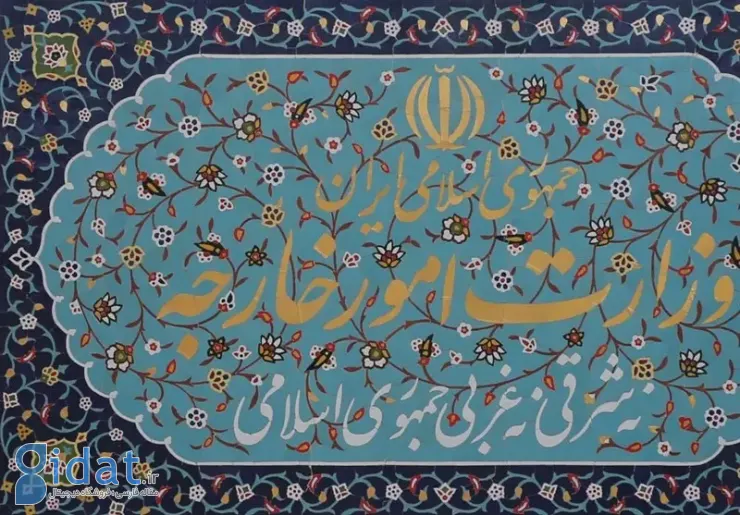 جمهوری اسلامی ایران
وزارت امور خارجه
نه شرقی نه غربی جمهوری اسلامی
gidat.ir
مجله فارسی، فروشگاه دیجیتال